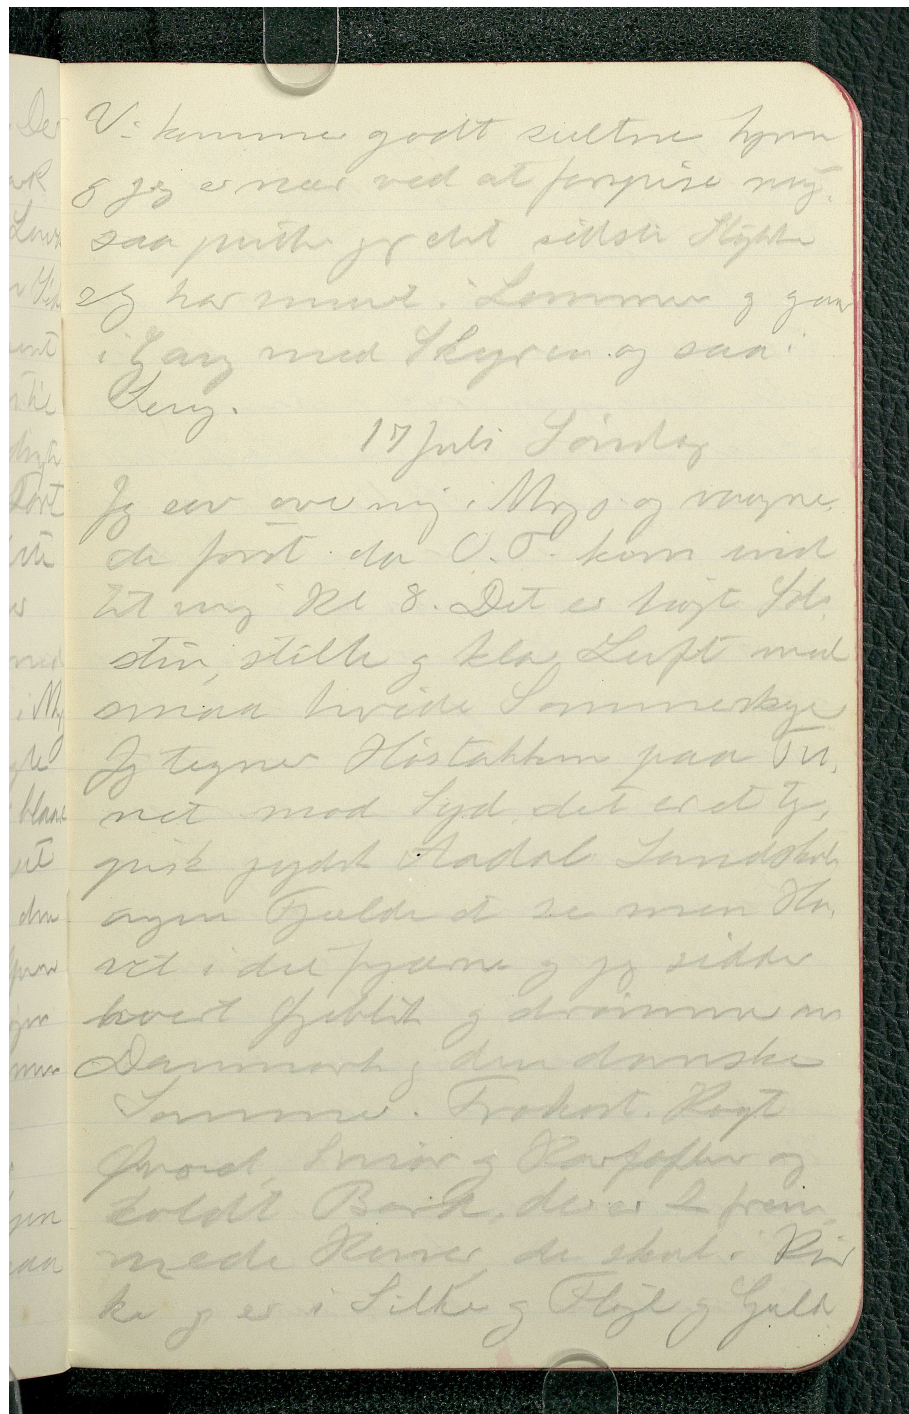 Vi kommer godt sultne hjem
& jeg er nær ved at forspise mig.
saa putter jeg det sidste Stykke
jeg har i Lommen & gaar
i Gang med Skyren og saa i
Seng.
17 Juli Söndag
Jg sov over mig i Morgs. og vaagne,
de först da O.T. kom ind
til mig Kl 8. Det er højt Sol,
skin, stille & klar Luft med
smaa hvide Sommerskyer
Jg tegner Höstakken paa Tu,
net mod Syd, det er et ty,
pisk jydsk Aadal Landskab
ingen Fjelde at se men Ha,
vet i det fjærne & jeg sidder
hvert Øjeblik & drömmer om
Danmark & den danske
Sommer. Frokost. Kogt
Örred, Smör & Kartofler og
koldt Vand, der er 2 frem,
mede Koner, de skal i Kir
ke & er i Silke & Fløjl & Guld